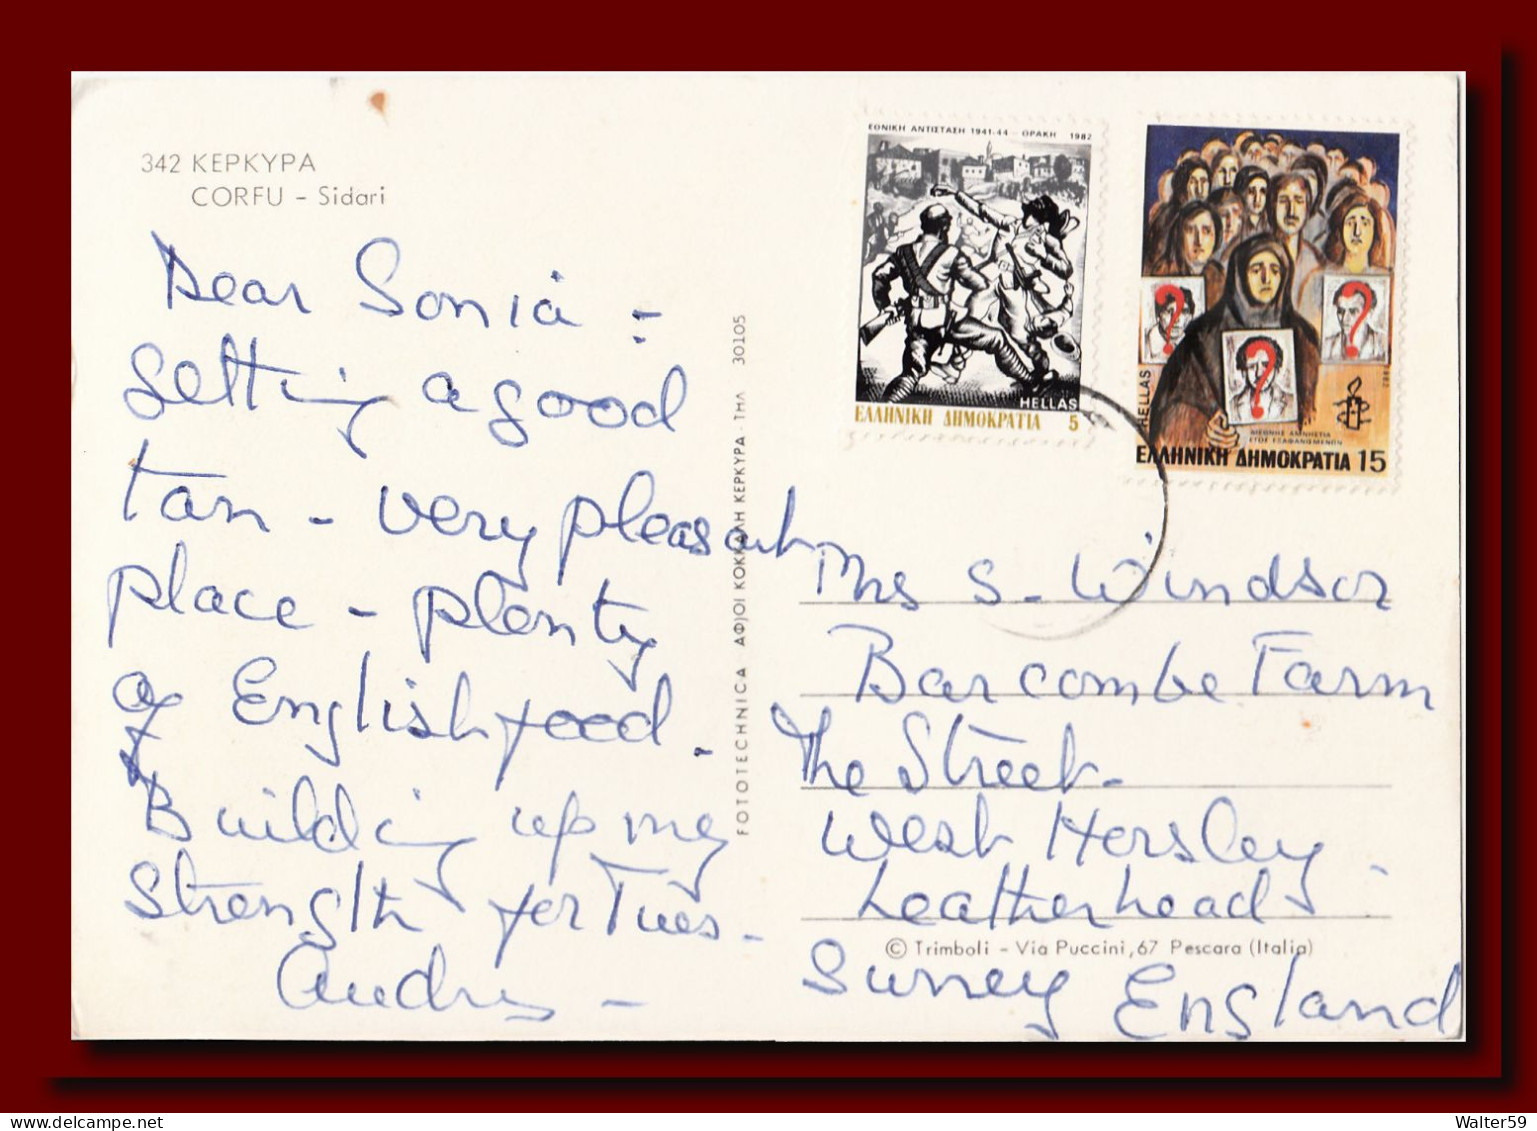 342 ΚΕΡΚΥΡΑ
CORFU – Sidari
Dear Sonia –
getting a good
tan – very pleasant
place – plenty
of English food –
Building up my
strength for Tues –
Audrey –
FOTOTECHNICA ΑΦ|ΟΙ ΚΟΚΚΑΛΗ ΚΕΡΚΥΡΑ · ΤΗΛ 30105
ΕΘΝΙΚΗ ΑΝΤΙΣΤΑΣΗ 1941-44 – ΘΡΑΚΗ 1982
HELLAS
ΕΛΛΗΝΙΚΗ ΔΗΜΟΚΡΑΤΙΑ 5
HELLAS
ΔΙΕΘΝΗΣ ΑΜΝΗΣΤΙΑ
ΕΤΟΣ ΕΞΑΦΑΝΙΣΜΕΝΩΝ
ΕΛΛΗΝΙΚΗ ΔΗΜΟΚΡΑΤΙΑ 15
Mrs S. Windsor
Barcombe Farm
The Street –
West Horsley –
Leatherhead
Surrey England
© Trimboli – Via Puccini, 67 Pescara (Italia)
Walter59